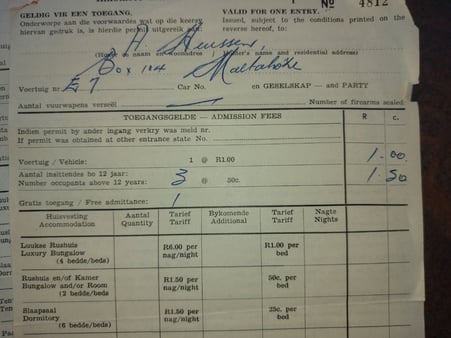 No 4812
GELDIG VIR EEN TOEGANG. VALID FOR ONE ENTRY.
Onderworpe aan die voorwaardes wat op die keersy Issued, subject to the conditions printed on the
hiervan gedruk is, is hierdie permit uitgereik aan: reverse hereto, to:
H
(Houer se naam en woonadres) (Holder's name and residential address)
Box 104 Maltahohe
Voertuig nr. Car No. en GESELSKAP — and PARTY
Aantal vuurwapens verseël Number of firearms sealed
TOEGANGSGELDE — ADMISSION FEES R c.
Indien permit by ander ingang verkry was meld nr.
If permit was obtained at other entrance state No.
Voertuig / Vehicle: 1 @ R1.00 1.00
Aantal insittendes bo 12 jaar:
Number occupants above 12 years: 3 @ 50c. 1.50
Gratis toegang / Free admittance: 1
Huisvesting Aantal Tarief Bykomende Tarief Nagte
Accommodation Quantity Tariff Additional Tariff Nights
Luukse Rushuis R6.00 per R1.00 per
Luxury Bungalow nag/night bed
(4 bedde/beds)
Rushuis en/of Kamer R1.50 per 50c. per
Bungalow and/or Room nag/night bed
(2 bedde/beds)
Slaapsaal R1.50 per 25c. per
Dormitory nag/night bed
(6 bedde/beds)